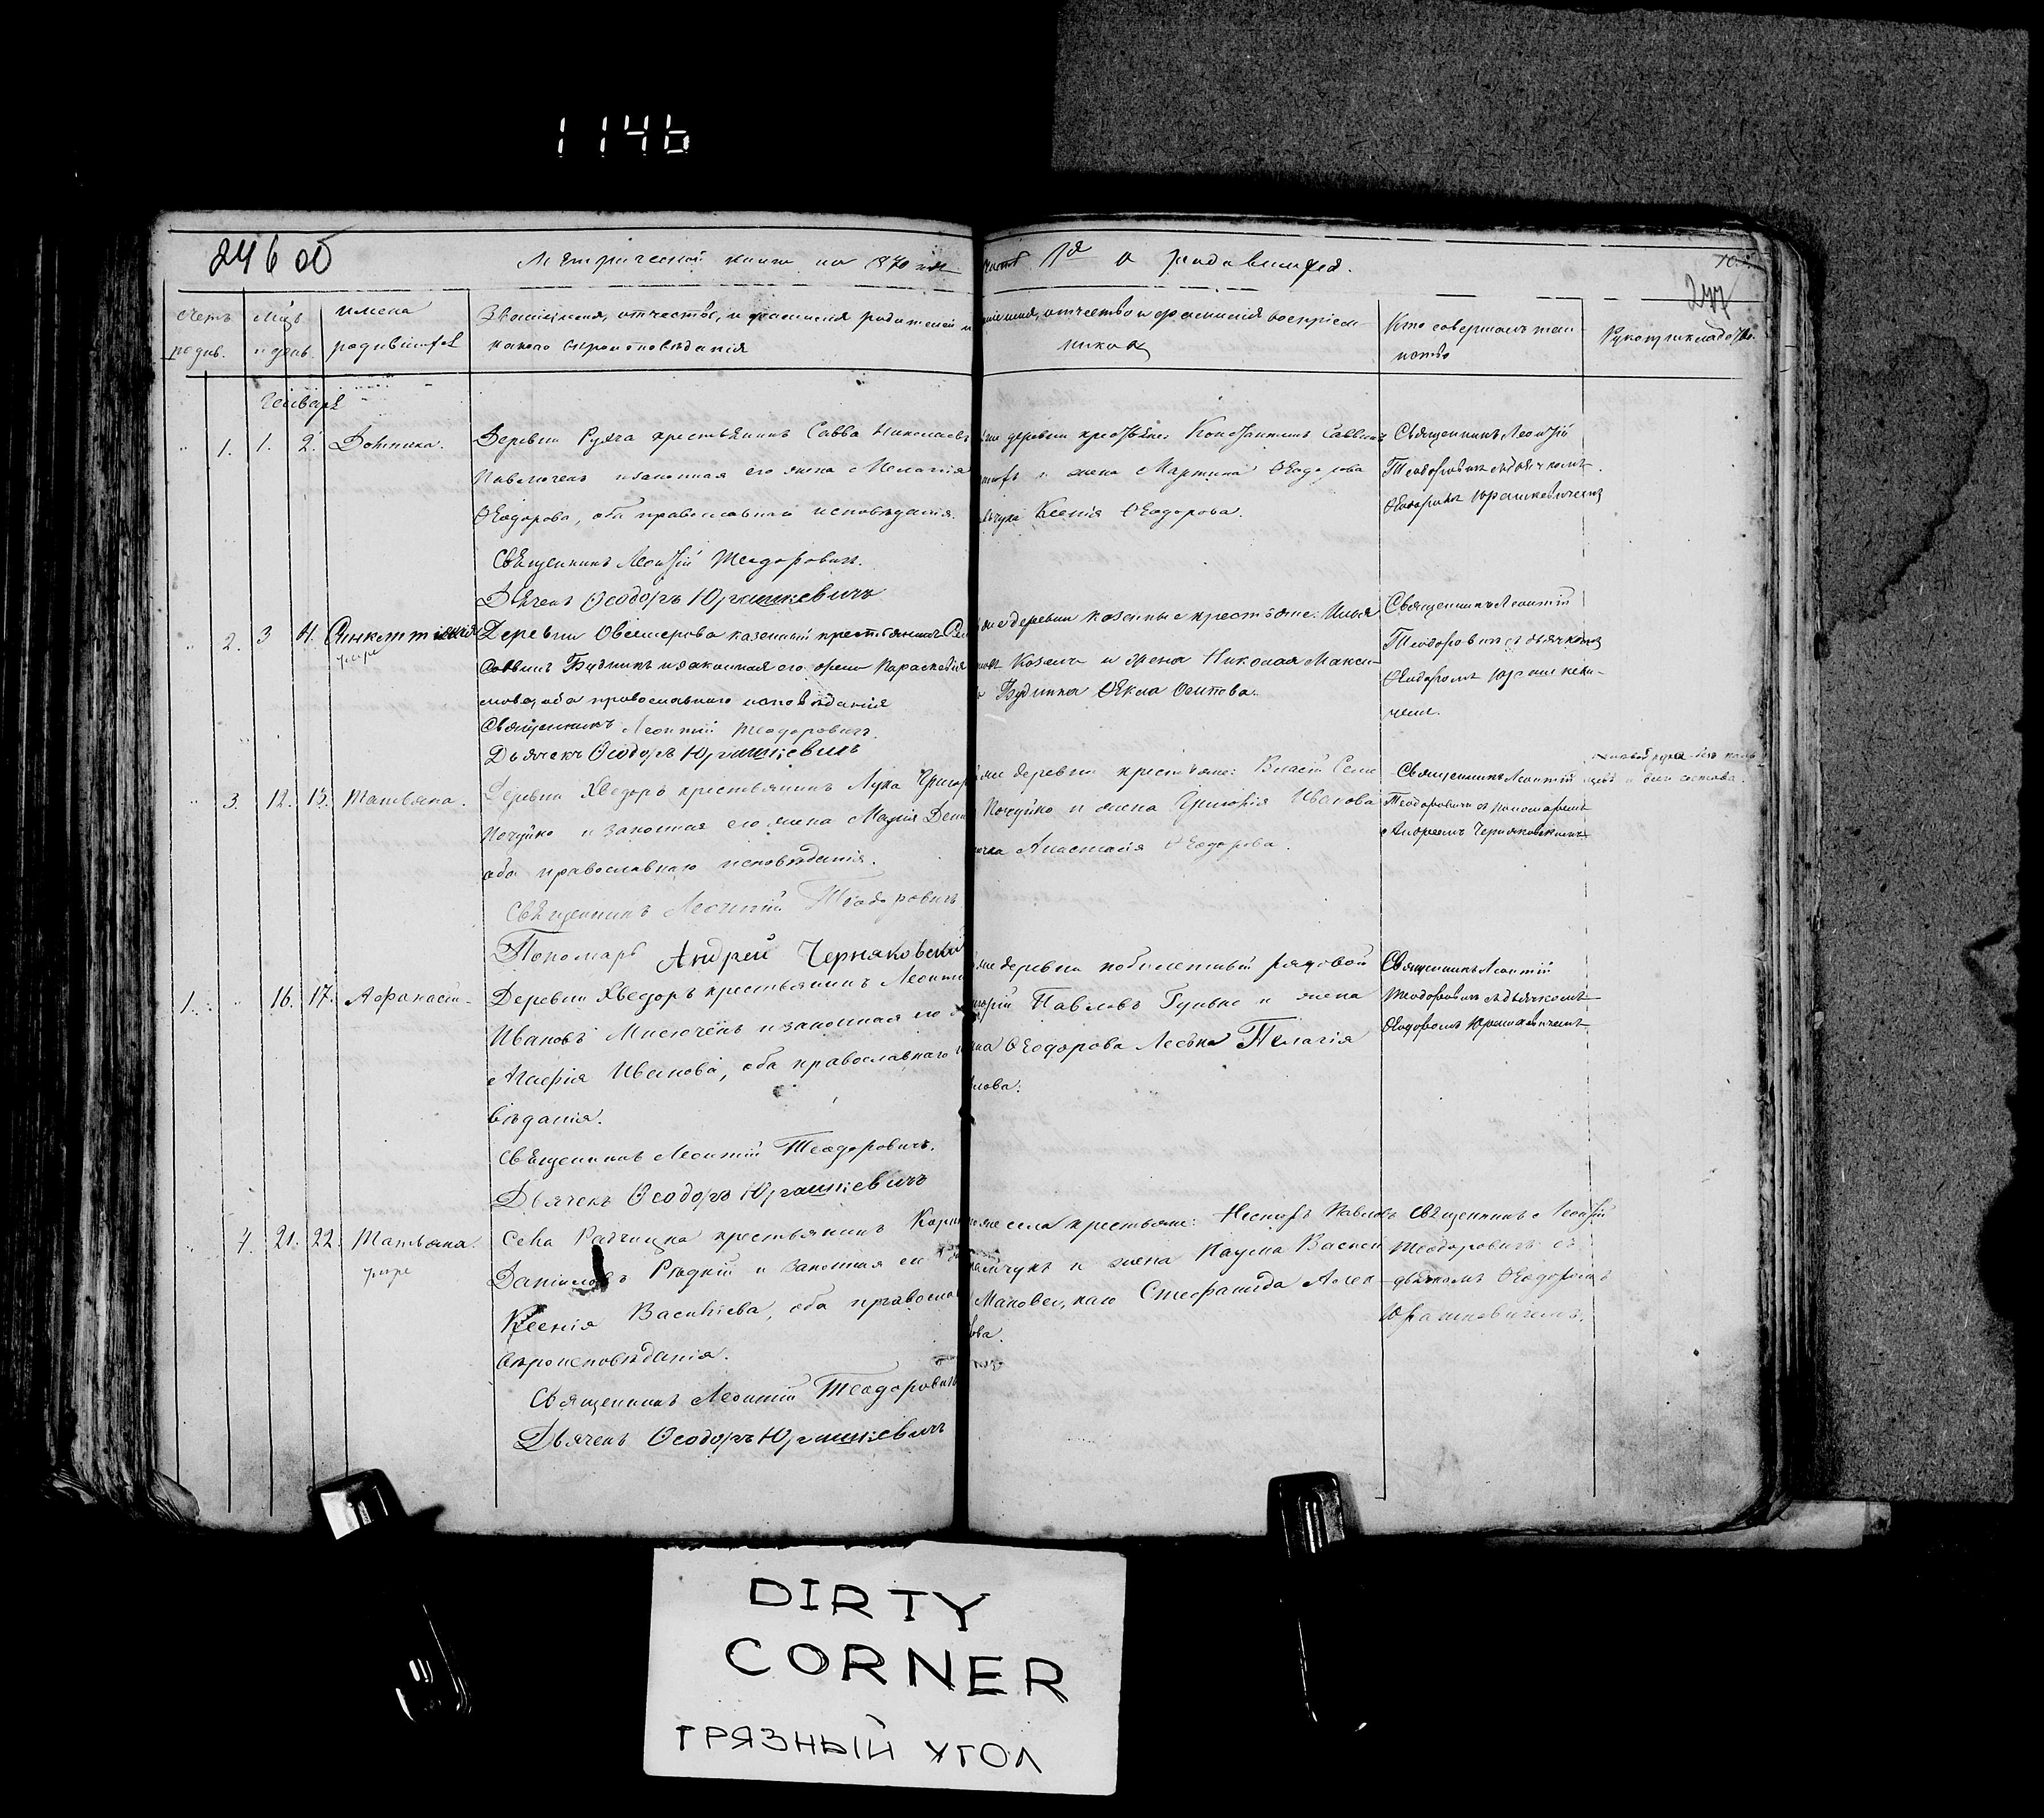 1146
246 об
Метрической книги на 1870 год часть 1я о родившихся.
277
Счетъ родив.
Мцъ и день
имена родившихся
Званіе, имя, отчество, и фамилія родителей и
какого вѣроисповѣданія
имя, отчество и фамилія воспріем-
никовъ
Кто совершалъ таи-
нство
Рукоприкладство
Генварь
1. 1. 2. Домника.
Деревни Рухча крестьянинъ Савва Николаевъ
Павлюченъ и законная его жена Мелагія
Ѳеодорова, оба православнаго исповѣданія.
Священникъ Леонтій Теодоровичъ.
Дьячекъ Ѳеодоръ Юрашкевичъ
деревни крестьяне: Константинъ Саввинъ
и жена Мартина Ѳеодорова
Ксенія Ѳеодорова.
Священникъ Леонтій
Теодоровичъ съ дьячкомъ
Ѳеодоромъ Юрашкевичемъ
2. 3 4. Синклитикія
умре
Деревни казенный крестьянинъ
Саввинъ Будникъ и законная его жена Параскевія
мова, оба православнаго исповѣданія
Священникъ Леонтій Теодоровичъ.
Дьячекъ Ѳеодоръ Юрашкевичъ
деревни казенные крестьяне: Илья
Козелъ и жена Николая Макси-
Будника Ѳекла Осипова.
Священникъ Леонтій
Теодоровичъ съ дьячкомъ
Ѳеодоромъ Юрашкеви-
чемъ.
3. 12. 13. Татьяна.
Деревни Хведоръ крестьянинъ Лука Григор
Почуйко и законная его жена Марія Дени
оба православнаго исповѣданія.
Священникъ Леонтій Теодоровичъ
Пономарь Андрей Черняковскій
деревни крестьяне: Власій Семе
Почуйко и жена Григорія Иванова
Анастасія Ѳеодорова.
Священникъ Леонтій
Теодоровичъ съ пономаремъ
Андреемъ Черняковскимъ
1. 16. 17. Аѳанасій.
Деревни Хведоръ крестьянинъ Леонтій
Ивановъ Мисюченъ и законная его
Агафія Иванова, оба православнаго
вѣданія.
Священникъ Леонтій Теодоровичъ.
Дьячекъ Ѳеодоръ Юрашкевичъ
деревни побилетный рядовой
Павловъ и жена
Ѳеодорова Пелагія
лова.
Священникъ Леонтій
Теодоровичъ съ дьячкомъ
Ѳеодоромъ Юрашкевичемъ
4. 21. 22. Татьяна.
умре
Села Радчицка крестьянинъ Карпъ
Даніиловъ Рѣдкій и законная его
Ксенія Васильева, оба православ
вѣроисповѣданія.
Священникъ Леонтій Теодоровичъ
Дьячекъ Ѳеодоръ Юрашкевичъ
села крестьяне: Несторъ Павловъ
и жена Наума Васил
Стефанида Алек
ова.
Священникъ Леонтій
Теодоровичъ съ
дьячкомъ Ѳеодоромъ
Юрашкевичемъ.
DIRTY
CORNER
ГРЯЗНЫЙ УГОЛ